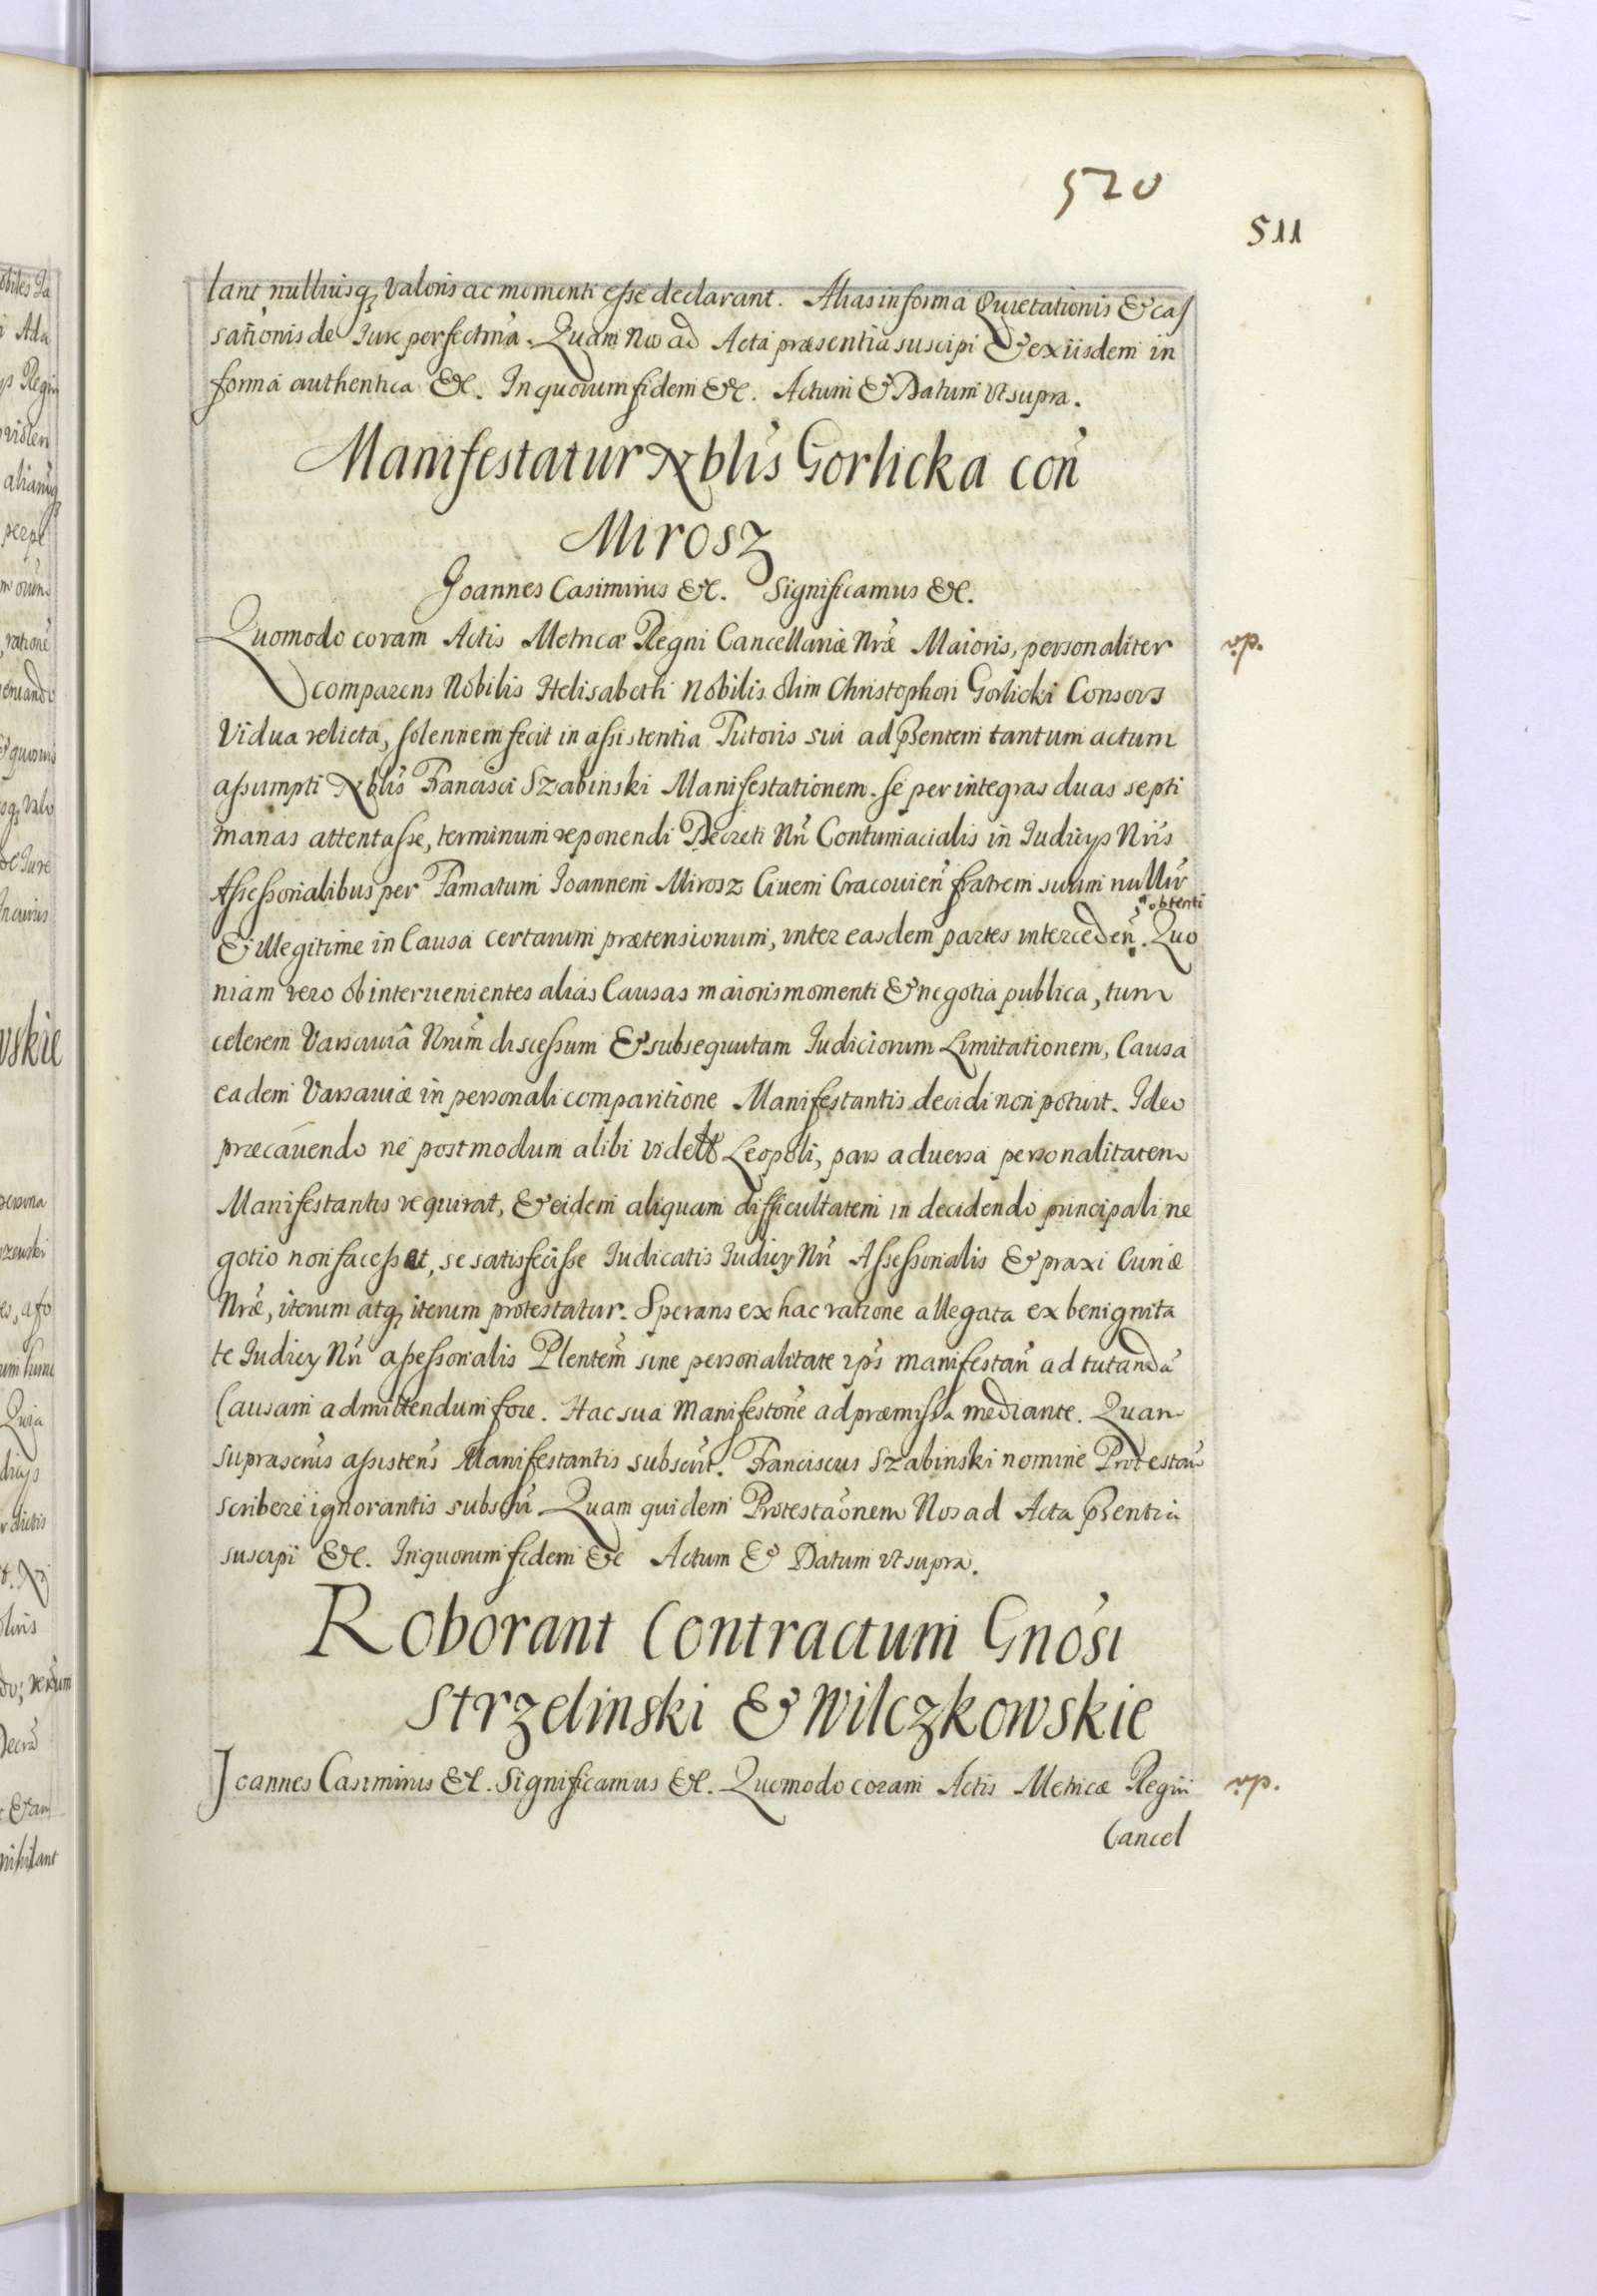 520
511
lant nulliusq, valoris ac momenti esse declarant. Alias in forma Quietationis & cas
sationis de Iure perfectma. Quam Nos ad Acta præsentia suscipi & ex iisdem in
forma authentica &c. In quorum fidem &c. Actum & Datum ut supra.
Manifestatur Nblis Gorlicka con
Mirosz
Joannes Casimirus &c. Significamus &c.
Quomodo coram Actis Metricæ Regni Cancellariæ Nræ Maioris, personaliter
comparens Nobilis Helisabeth Nobilis olim Christophori Gorlicki Consors
Vidua relicta, solennem fecit in assistentia Tutoris sui ad psentem tantum actum
assumpti Nblis Francisci Szabinski Manifestationem. se per integras duas septi
manas attentasse, terminum reponendi Decreti Nri Contumacialis in Iudicys Nris
Assessorialibus per Famatum Ioannem Mirosz Civem Cracovien fratrem suum nullir
obtenti
& illegitime in Causa certarum prætensionum, inter easdem partes interceden. Quo
niam vero ob intervenientes alias Causas maioris momenti & negotia publica, tum
celerem Varsaviâ Nrum discessum & subsequutam Iudiciorum Limitationem, Causa
eadem Varsaviæ in personali comparitione Manifestantis decidi non potuit. Ideo
præcavendo ne postmodum alibi videlt Leopoli, pars adversa personalitatem
Manifestantis requirat, & eidem aliquam difficultatem in decidendo principali ne
gotio non facesset, se satisfecisse Iudicatis Iudicy Nri Assessorialis & praxi Curiæ
Nræ, iterum atq, iterum protestatur. Sperans ex hac ratione allegata ex benignita
te Iudicy Nri assessorialis Plentem sine personalitate ips manifestan ad tutanda
Causam admittendum fore. Hac sua Manifestone ad præmissa mediante. Quam
suprascrius assistens Manifestantis subscrit. Franciscus Szabinski nomine Protestan
scribere ignorantis subscri Quam quidem Protestaonem Nos ad Acta psentia
suscipi &c. In quorum fidem &c Actum & Datum ut supra.
Roborant Contractum Gnosi
Strzelinski & Wilczkowskie
Joannes Casimirus &c. Significamus &c. Quomodo coram Actis Metricæ Regni
Cancel